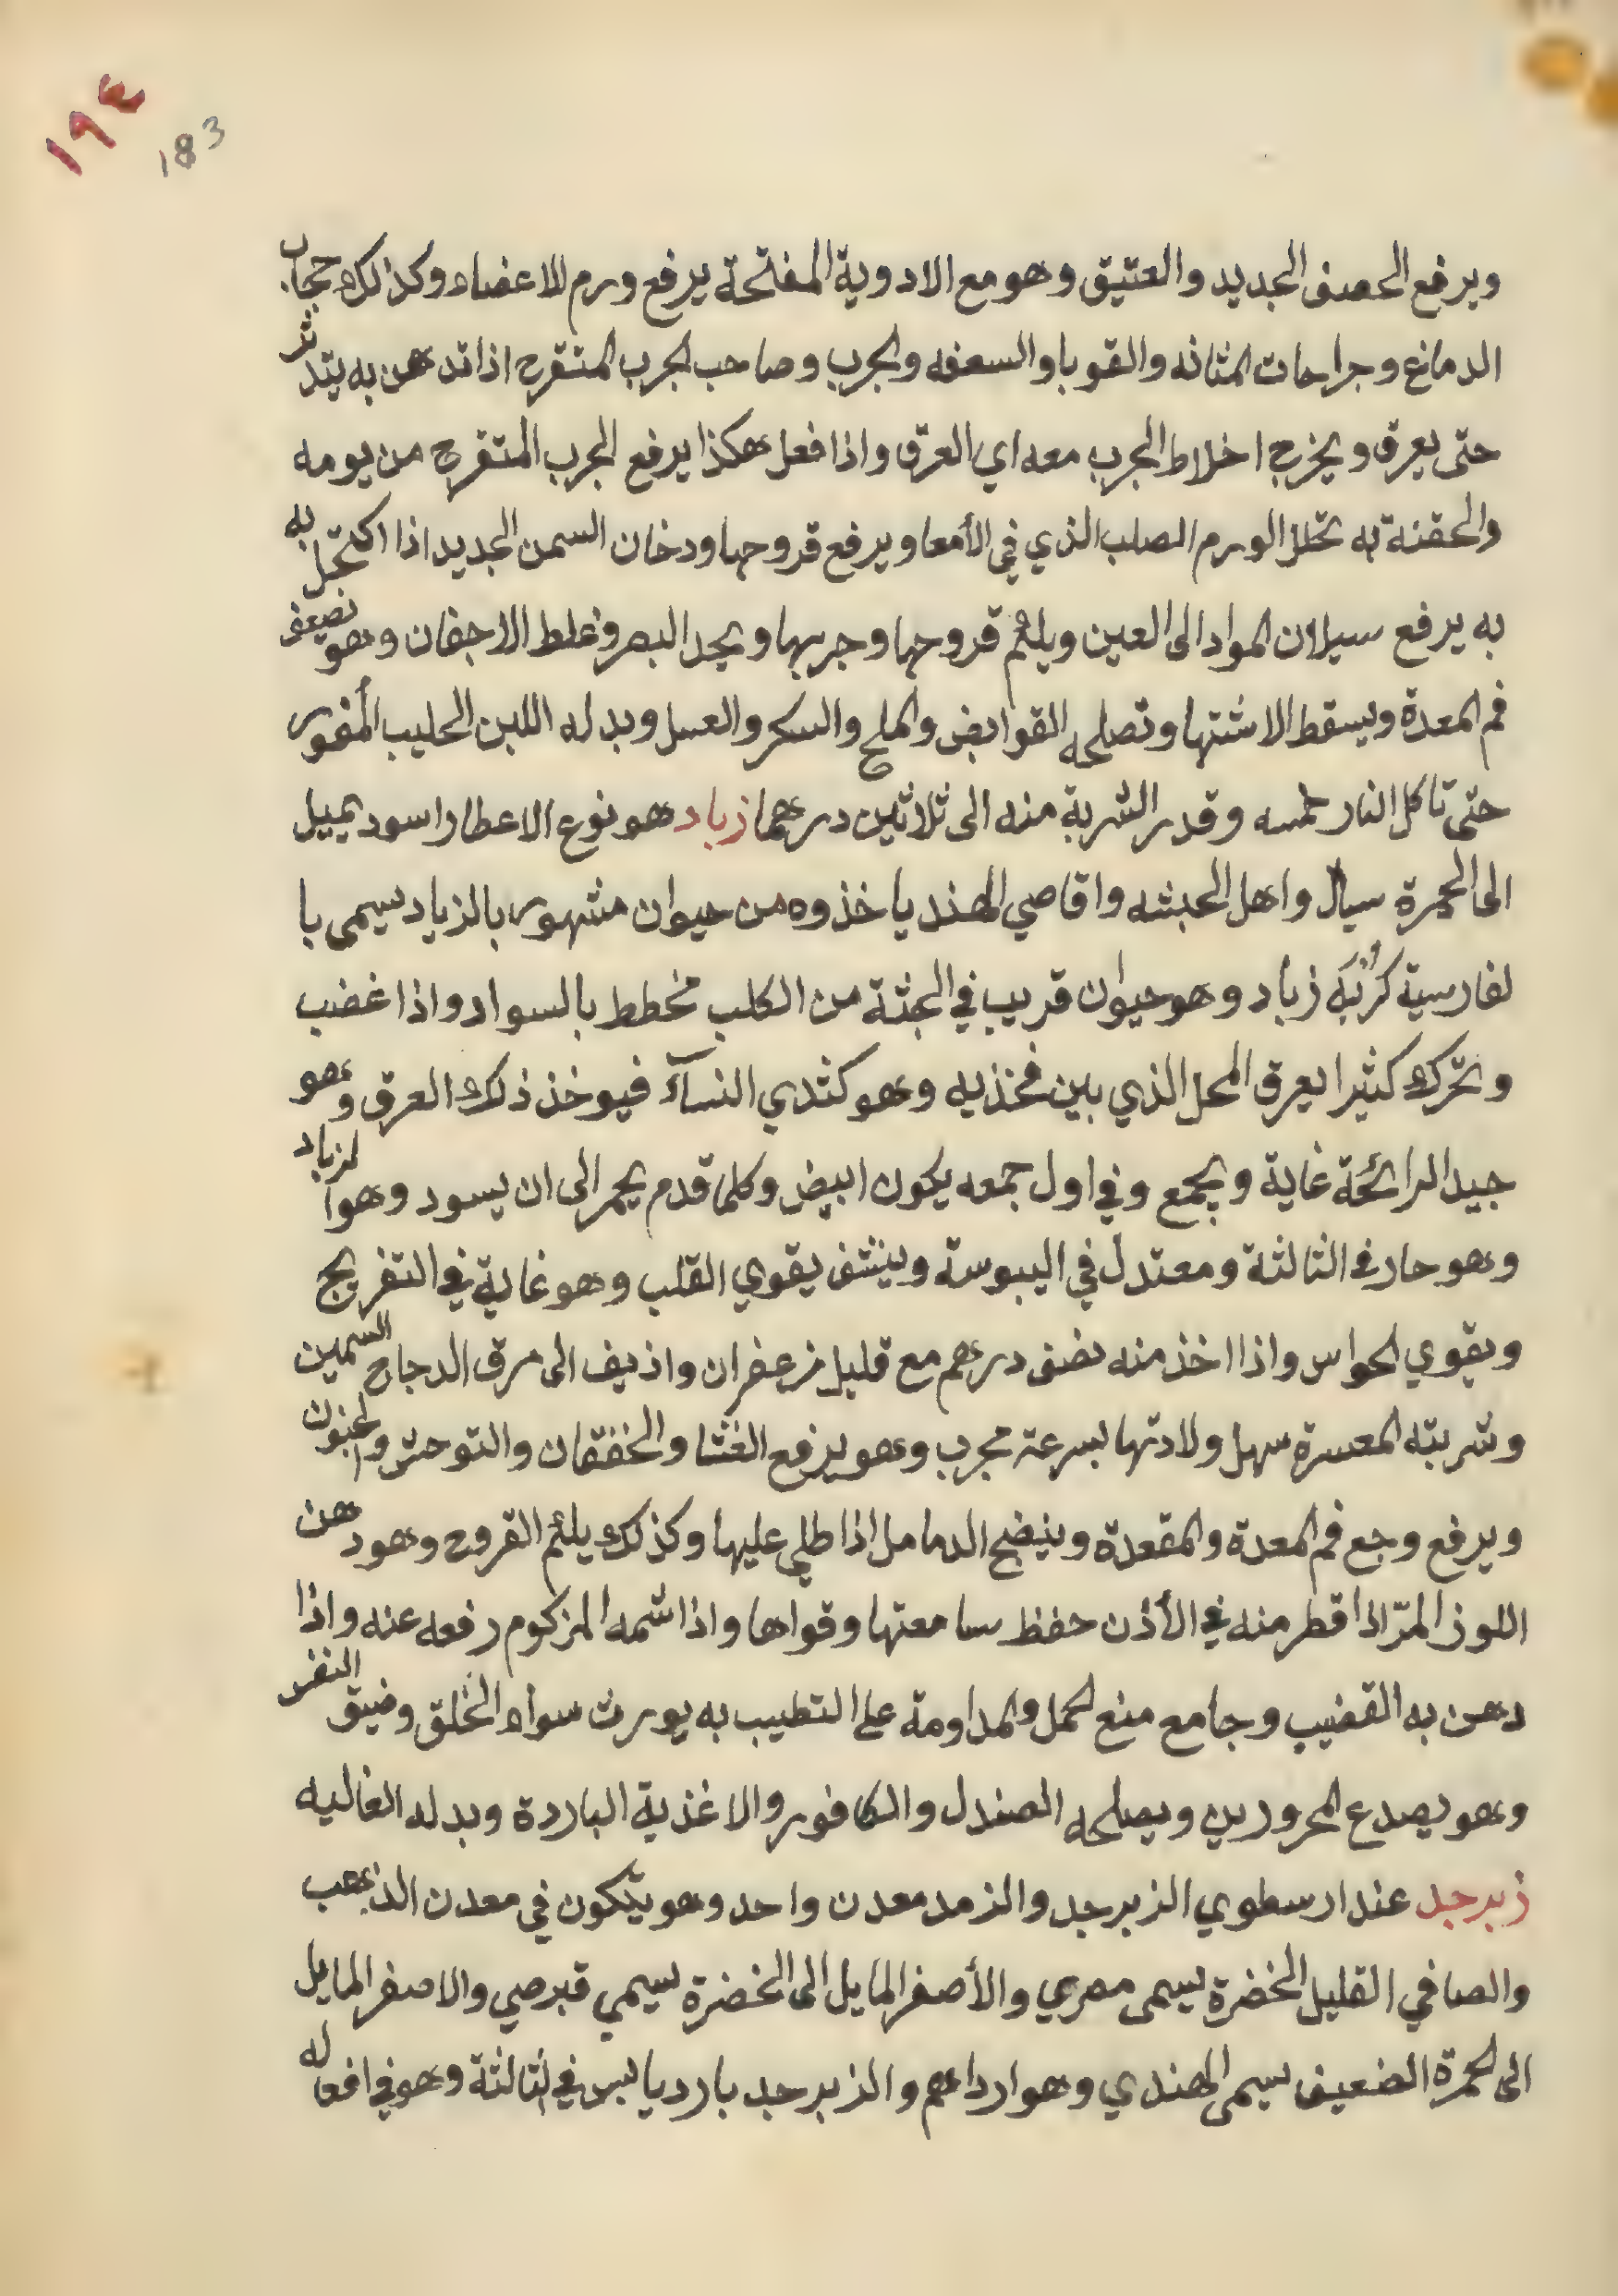 ١٩٤
183
ويرفع الحصف الجديد والعتيق وهو مع الادوية المفتحة يرفع ورم الاعضاء وكذالك حجاب
الدماغ وجراحات المثانه والقوبا والسعفه والجرب وصاحب الجرب المتقرح اذا تدهن به يتدثر
حتى يعرق ويخرج اخلاط الجرب معه اي العرق واذا فعل هكذا يرفع الجرب المتقرح من يومه
والحقنة به تحلل الورم الصلب الذي في الأمعا ويرفع قروحها ودخان السمن الجديد اذا اكتحل به
به يرفع سيلان المواد الى العين ويلئم قروحها وجربها ويحد البصر وغلط الاجفان وهو نصيعف
فم المعدة ويسقط الاشتها وتصلحه القوابض والملح والسكر والعسل وبدله اللبن الحليب المغور
حتى تاكل النار خمسه وقدر الشربة منه الى ثلاثين درهما زباد هو نوع الاعطار اسود يميل
الى الحمرة سيال واهل الحبشه واقاصي الهند ياخذوه من حيوان مشهور بالزباد يسمى با
لفارسية كربَه زباد وهو حيوان قريب في الجثة من الكلب مخطط بالسواد واذا غضب
وتحرك كثيرا يعرق المحل الذي بين فخذيه وهو كثدي النسآء فيوخذ ذلك العرق وهو
جيد الرائحة غاية ويجمع وفي اول جمعه يكون ابيض وكلما قدم يحمر الى ان يسود وهو الزباد
وهو حار في الثالثة ومعتدل في اليبوسة وينشف يقوي القلب وهو غاية في التفريح
ويقوي الحواس واذا اخذ منه نصف درهم مع قليل زعفران واذيف الى مرق الدجاج السمين
وشربته المعسرة سهل ولادتها بسرعة مجرب وهو يرفع الغشا والخفقان والتوحش والجنون
ويرفع وجع فم المعدة والمقعدة وينضج الدمامل اذا طلي عليها وكذلك يلئم القروح وهو دهن
اللوز المرّ اذا قطر منه في الأذن حفظ سامعتها وقواها واذا شمه المزكوم رفعه عنه واذا
دهن به القضيب وجامع منع الحمل والمداومة على التطيب به يورث سواء الخلق وضيق النفس
وهو يصدع المحرورين ويصلحه الصندل والكافور والاغذية الباردة وبدله الغاليه
زبرجد عند ارسطوي الزبرجد والزمد معدن واحد وهو يتكون في معدن الذهب
والصافي القليل الخضرة يسمى مصري والأصفر المايل الى الخضرة يسمي قبرصي والاصفر المايل
الى الحمرة الضعيف يسمى الهندي وهو ارداهم والزبرجد بارد يابس في الثالثة وهو في افعاله